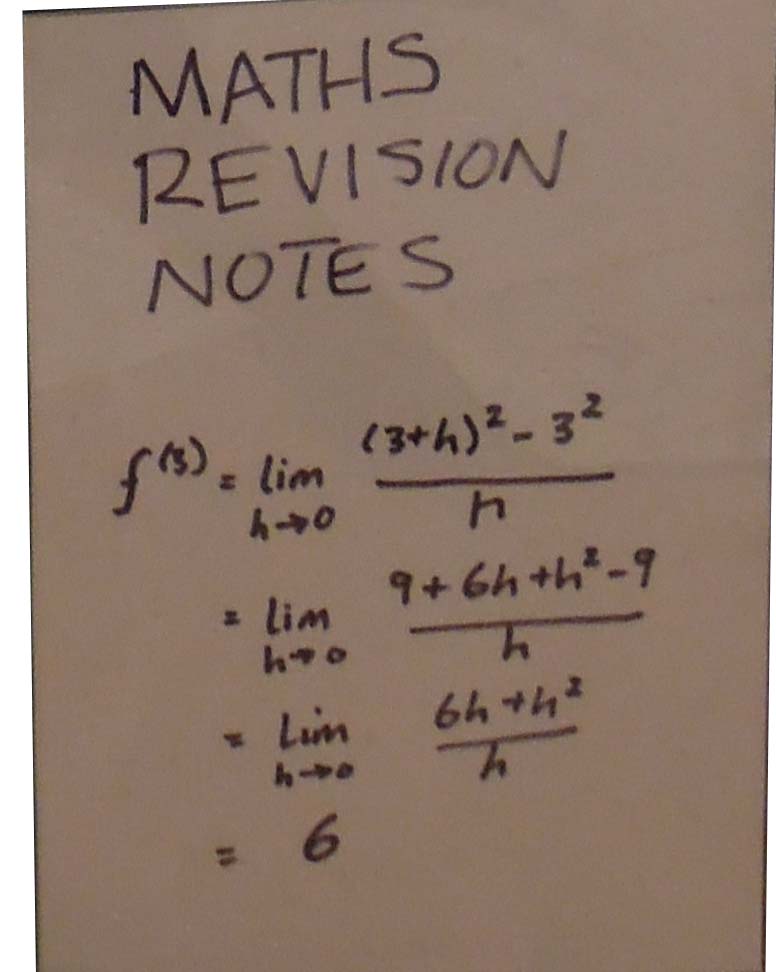 MATHS
REVISION
NOTES
f(3) = lim h→0 ((3+h)² - 3²)/h
= lim h→0 (9 + 6h + h² - 9)/h
= lim h→0 (6h + h²)/h
= 6